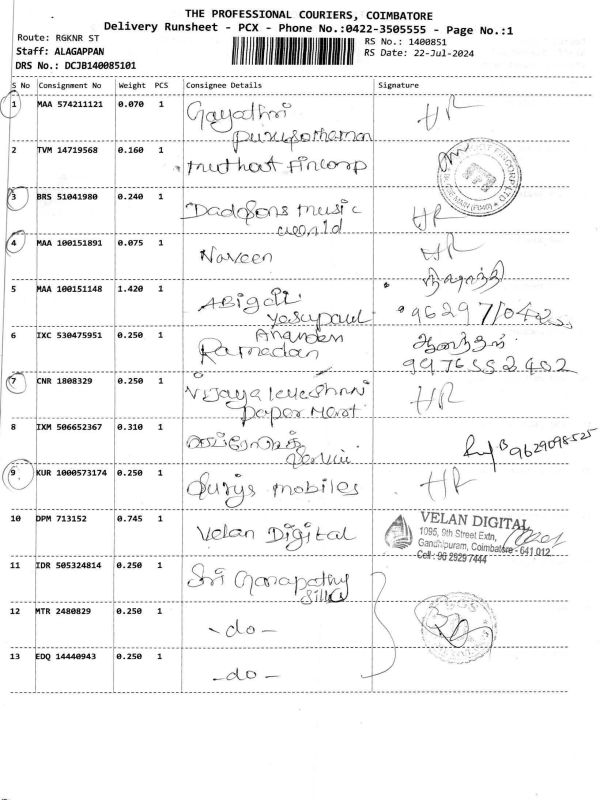 THE PROFESSIONAL COURIERS, COIMBATORE
Delivery Runsheet - PCX - Phone No.:0422-3505555 - Page No.:1
Route: RGKNR ST
RS No.: 1400851
Staff: ALAGAPPAN
RS Date: 22-Jul-2024
DRS No.: DCJB140085101
S No Consignment No Weight PCS Consignee Details Signature
1 MAA 574211121 0.070 1 Gayathri HR
purusothaman
2 TVM 14719568 0.160 1 muthoot Fincorp
3 BRS 51041980 0.240 1 Dadasons music HR
world
4 MAA 100151891 0.075 1 Naveen HR
5 MAA 100151148 1.420 1 ABigail
Yesupaul
6 IXC 530475951 0.250 1 Anandan
Ramadan 9976552402
7 CNR 1808329 0.250 1 Vijayalakshmi HR
Paper Mart
8 IXM 506652367 0.310 1 9629098525
9 KUR 1000573174 0.250 1 Surys mobiles HR
10 DPM 713152 0.745 1 Velan Digital VELAN DIGITAL
1095, 9th Street Extn,
Gandhipuram, Coimbatore - 641 012
Cell : 96 2929 7444
11 IDR 505324814 0.250 1 Sri Ganapathy
Silks
12 MTR 2480829 0.250 1 - do -
13 EDQ 14440943 0.250 1 - do -